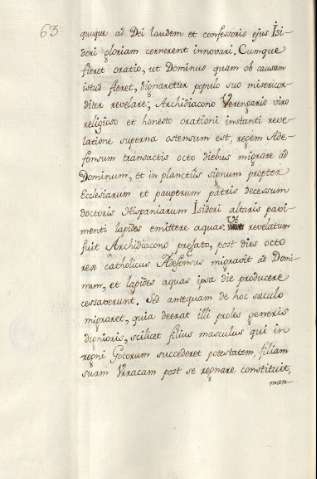 63
quique ad Dei laudem et confessoris ejus Isi-
dori gloriam cernerent innovari. Cumque
fieret oratio, ut Dominus quam ob causam
istud fieret, dignaretur populo suo misericor-
diter revelare; Archidiacono Verengario viro
religioso et honesto orationi instanti reve-
latione superna ostensum est, regem Ade-
fonsum transactis octo diebus migrare ad
Dominum, et in planctus signum propter
Ecclesiarum et pauperum patris decessum
doctoris Hispaniarum Isidori altaris pavi-
menti lapides emittere aquas. Ut revelatum
fuit Archidiacono prefato, post dies octo
rex catholicus Adefonsus migravit ad Domi-
num, et lapides aquas ipsa die producere
cessaverunt. Sed antequam de hoc saeculo
migraret, quia deerat illi proles generis
dignioris, scilicet filius masculus qui in
regni Gotorum succederet potestatem, filiam
suam Urracam post se regnare constituit,
man-